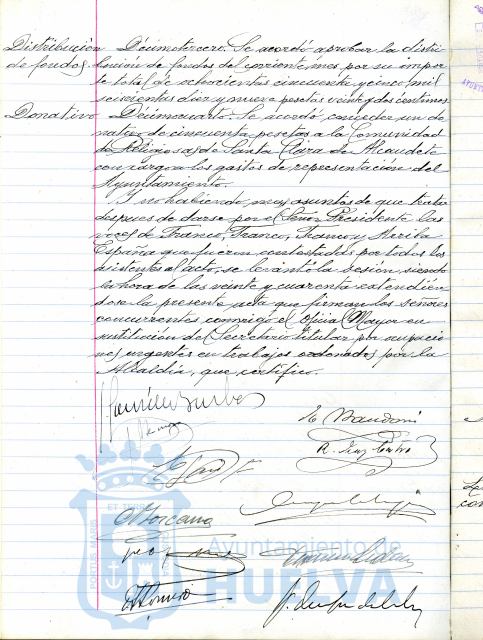 Distribución
de fondos.
Décimotercero. Se acordó aprobar la distri-
bución de fondos del corriente mes, por su impor-
te total de ochocientas cincuenta y cinco mil
seiscientas diez y nueve pesetas veinte y dos céntimos.
Donativo
Décimocuarto. Se acordó conceder un do-
nativo de cincuenta pesetas a la Comunidad
de Religiosas de Santa Clara de Alcaudete
con cargo a los gastos de representación del
Ayuntamiento.
Y no habiendo mas asuntos de que tratar
despues de darse por el Señor Presidente las
voces de Franco, Franco, Franco y Arriba
España que fueron contestadas por todos los
asistentes al acto, se levantó la sesion, siendo
la hora de las veinte y cuarenta extendién-
dose la presente acta que firman los señores
concurrentes conmigo el Oficial Mayor en
sustitución del Secretario titular por ocupacio-
nes urgentes en trabajos ordenados por la
Alcaldía, que certifico.
PORTUS MARIS
ET TERRAE
Ayuntamiento de
HUELVA